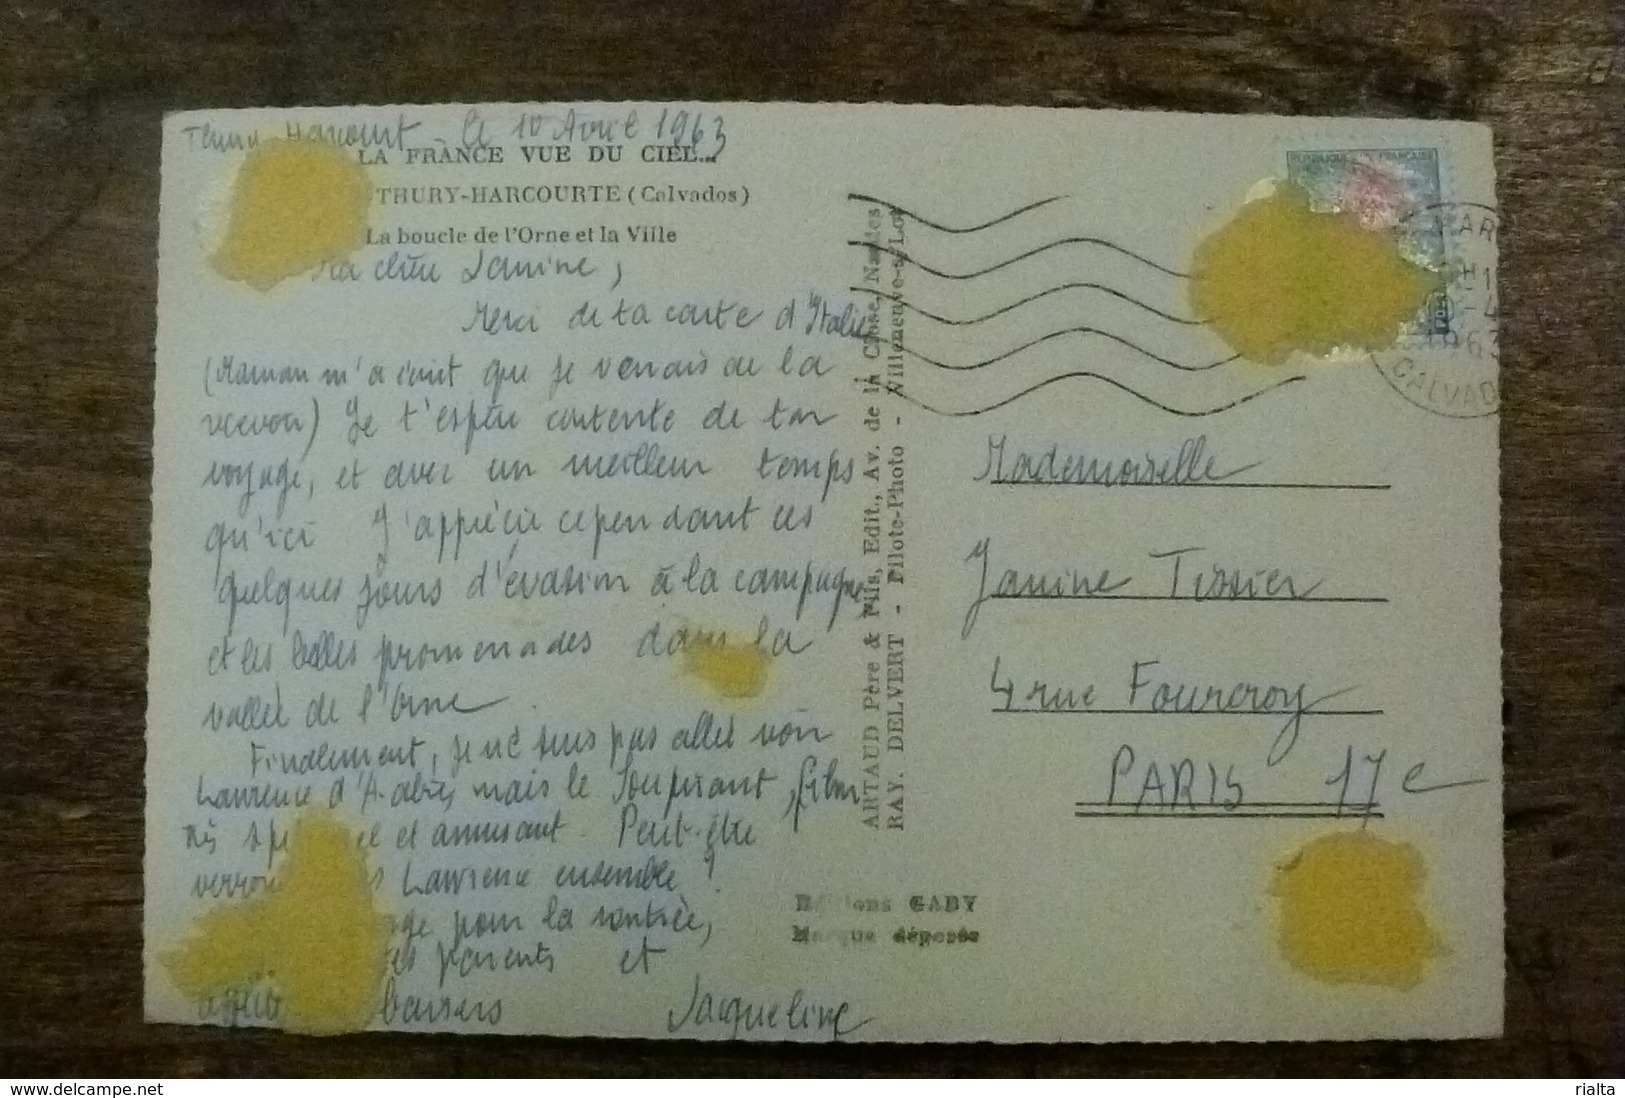 Thury-Harcourt le 10 Avril 1963
LA FRANCE VUE DU CIEL...
THURY-HARCOURTE (Calvados)
La boucle de l'Orne et la Ville
Ma chère Janine,
Merci de ta carte d'Italie
(Maman m'a écrit que je venais de la
recevoir) Je t'espère contente de ton
voyage, et avec un meilleur temps
qu'ici J'apprécie cependant ces
quelques jours d'évasion à la campagne
et les belles promenades dans la
vallée de l'Orne.
Finalement, je ne suis pas allée voir
Lawrence d'Arabie, mais le Soupirant, film
très et amusant. Peut-être
Lawrence ensemble ?
pour la rentrée,
parents et
baisers Jacqueline
ARTAUD Père & Fils, Edit., Av. de la Close, Nantes
RAY. DELVERT - Pilote-Photo - Villeneuve-s/Lot
Editions GABY
Marque déposée
REPUBLIQUE FRANÇAISE
HAR
1963
CALVAD
Mademoiselle
Janine Tissier
4 rue Fourcroy
PARIS 17e
www.delcampe.net
rialta